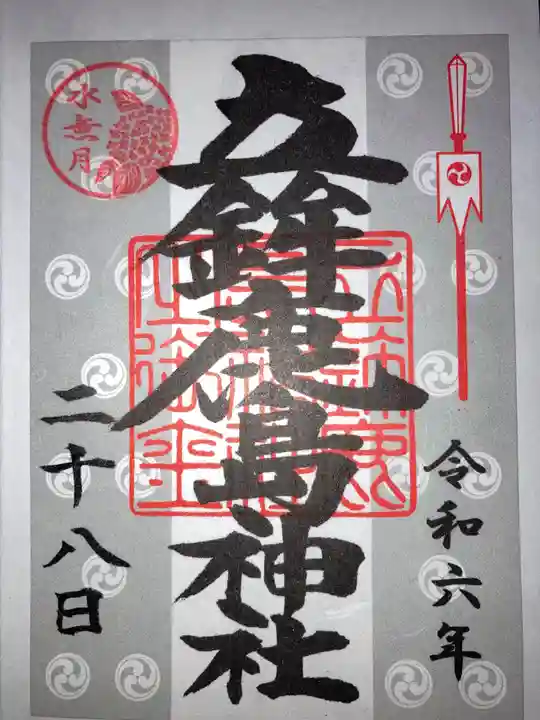 令和六年
立鉾鹿島神社
水無月
二十八日